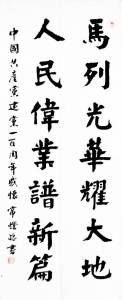 馬列光華耀大地
人民偉業譜新篇
中國共產黨建黨一百周年感懷